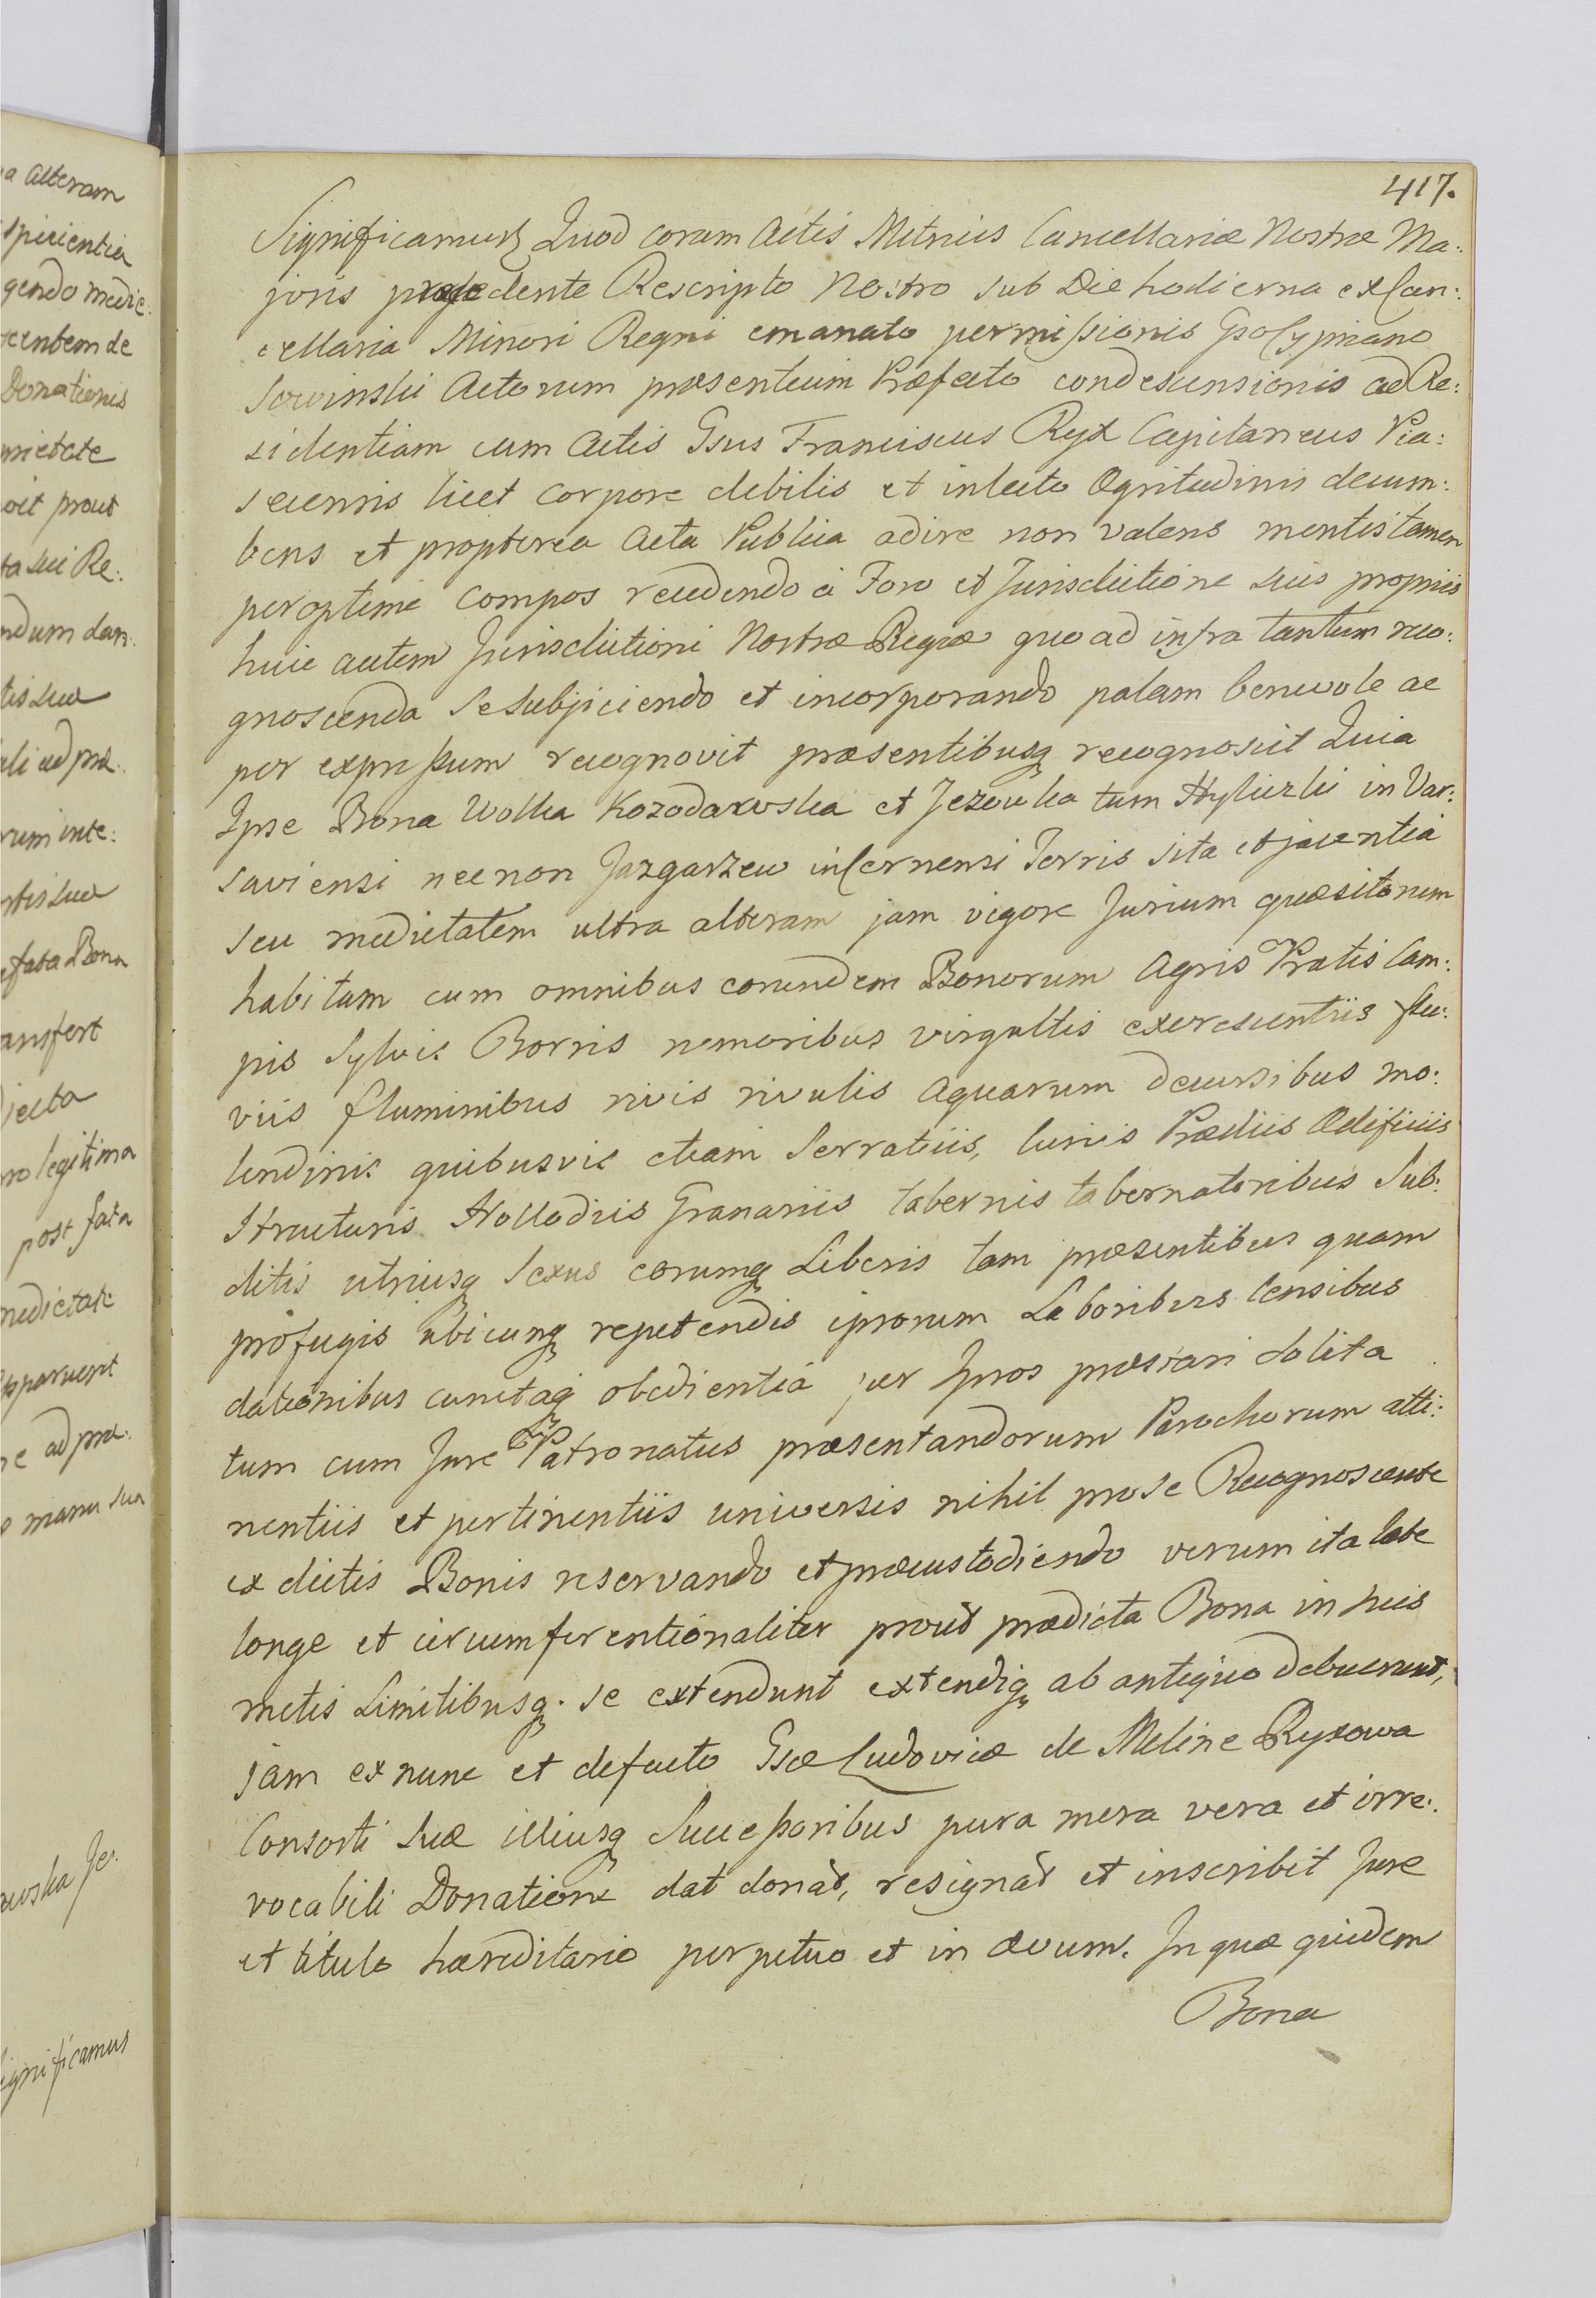 417.
Significamus Quod coram Actis Metricis Cancellariæ Nostræ Ma:
joris præcedente Rescripto Nostro sub Die hodierna ex Can:
cellaria Minori Regni emanato permissionis Gso Cypriano
Sowinski Actorum præsentium Præfecto condescensionis ad Re:
sidentiam cum Actis Gsus Franciscus Ryx Capitaneus Pia:
secensis licet corpore debilis et in lecto Ægritudinis decum:
bens et propterea Acta Publica adire non valens mentis tamen
peroptime compos recedendo à Foro et Jurisdictione suis propriis
huic autem Jurisdictioni Nostræ Regiæ quo ad infra tantum reco:
gnoscenda se subjiciendo et incorporando palam benevole ac
per expressum recognovit præsentibusq recognoscit Quia
Ipse Bona Wolka Kozodawska et Jezowka tum Hyliczki in Var:
saviensi necnon Jazgarzew in Cernensi Terris sita et jacentia
seu medietatem ultra alteram jam vigore Jurium quæsitorum
habitam cum omnibus eorundem Bonorum Agris Pratis Cam:
pis Sylvis Borris nemoribus virgultis excrescentiis flu:
viis fluminibus rivis rivulis aquarum decursibus mo:
lendinis quibusvis etiam Serratiis, Curiis Prædiis Ædificiis
Structuris Allodiis Granariis tabernis tabernatoribus Sub:
ditis utriusq Sexus eorumq Liberis tam præsentibus quam
profugis ubicunq repetendis ipsorum Laboribus Censibus
dationibus cunctaq obedientiâ per Ipsos præstari solita
tum cum Jure Patronatus præsentandorum Parochorum atti:
nentiis et pertinentiis universis nihil pro se Recognoscente
ex dictis Bonis reservando et præcustodiendo verum ita late
longe et circumferentionaliter prout prædicta Bona in suis
metis Limitibusq. se extendunt extendiq ab antiquo debuerunt,
jam ex nunc et de facto Gsæ Ludovicæ de Meline Ryxowa
Consorti suæ illiusq Successoribus pura mera vera et irre:
vocabili Donatione dat donat, resignat et inscribit Jure
et titulo hæreditario perpetuo et in ævum. In quæ quidem
Bona